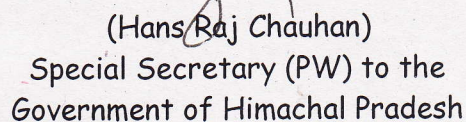 (Hans Raj Chauhan)
Special Secretary (PW) to the
Government of Himachal Pradesh